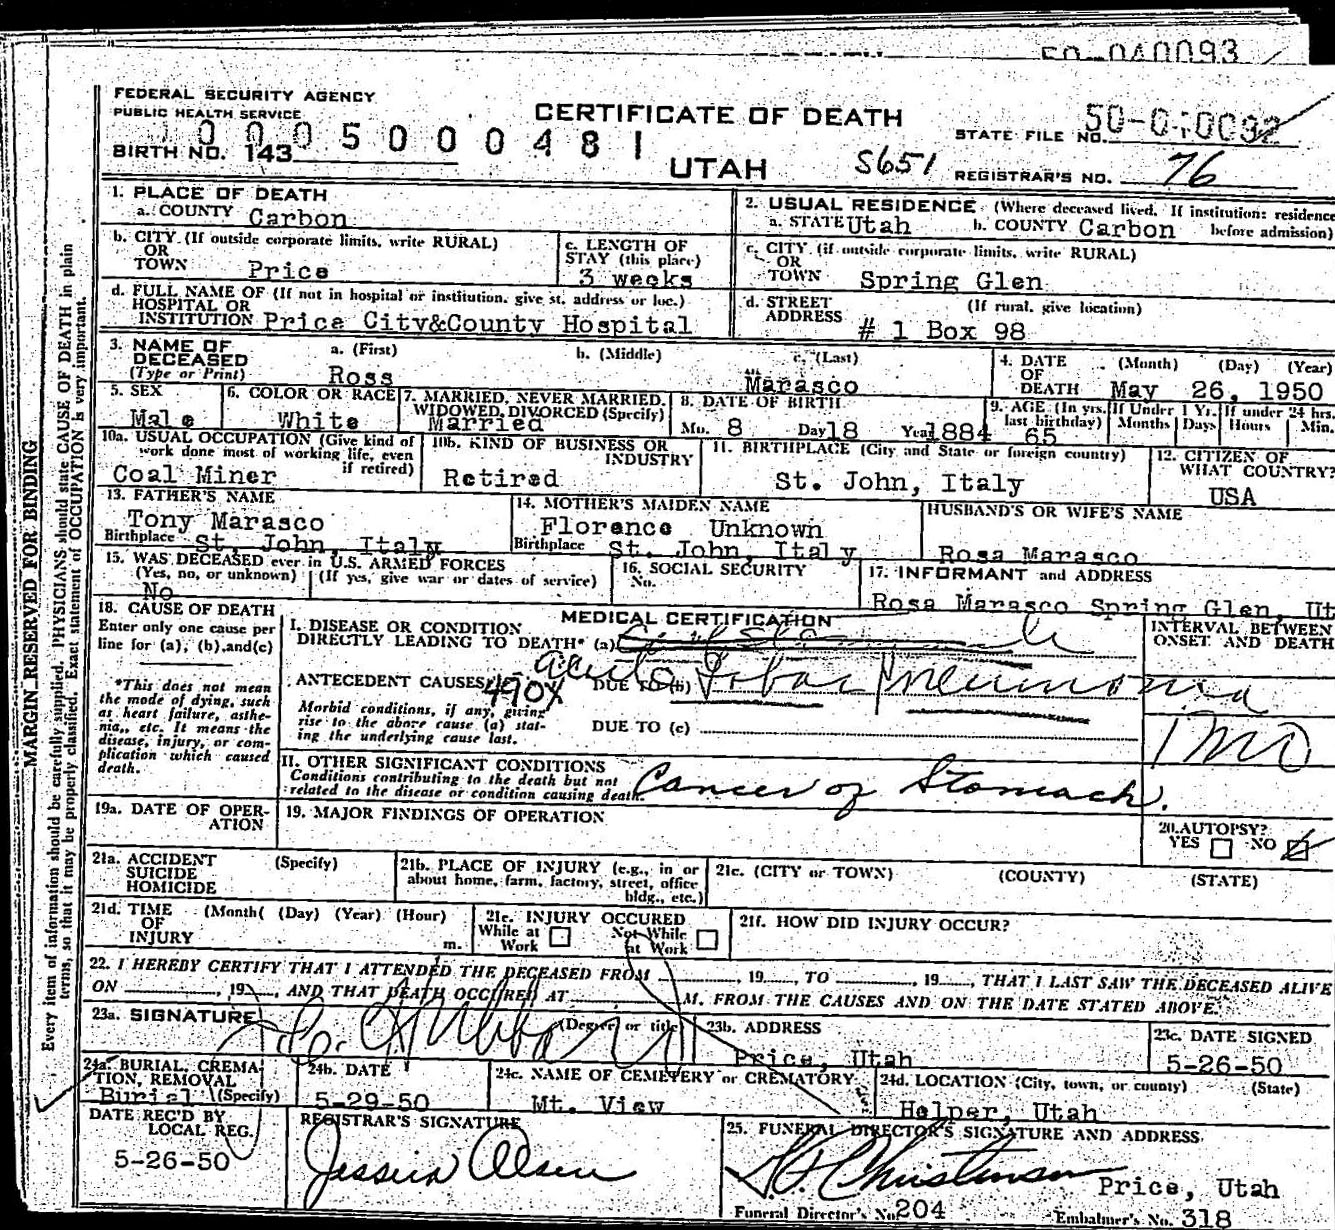 50-040093
FEDERAL SECURITY AGENCY
PUBLIC HEALTH SERVICE
CERTIFICATE OF DEATH
STATE FILE NO. 50-040092
0005000481
BIRTH NO. 143
UTAH
S651
REGISTRAR'S NO. 76
1. PLACE OF DEATH
a. COUNTY Carbon
2. USUAL RESIDENCE (Where deceased lived. If institution: residence
a. STATE Utah b. COUNTY Carbon before admission)
b. CITY (If outside corporate limits, write RURAL)
OR
TOWN Price
c. LENGTH OF
STAY (this place)
3 weeks
c. CITY (if outside corporate limits, write RURAL)
OR
TOWN Spring Glen
d. FULL NAME OF (If not in hospital or institution, give st. address or loc.)
HOSPITAL OR
INSTITUTION Price City&County Hospital
d. STREET (If rural, give location)
ADDRESS # 1 Box 98
3. NAME OF a. (First) b. (Middle) c. (Last)
DECEASED
(Type or Print) Ross Marasco
4. DATE (Month) (Day) (Year)
OF
DEATH May 26, 1950
5. SEX
Male
6. COLOR OR RACE
White
7. MARRIED, NEVER MARRIED,
WIDOWED, DIVORCED (Specify)
Married
8. DATE OF BIRTH
Mo. 8 Day 18 Year 1884
9. AGE (In yrs. last birthday) 65
If Under 1 Yr. Months Days
If under 24 hrs. Hours Min.
10a. USUAL OCCUPATION (Give kind of
work done most of working life, even
if retired)
Coal Miner
10b. KIND OF BUSINESS OR
INDUSTRY
Retired
11. BIRTHPLACE (City and State or foreign country)
St. John, Italy
12. CITIZEN OF
WHAT COUNTRY?
USA
13. FATHER'S NAME
Tony Marasco
Birthplace St. John, Italy
14. MOTHER'S MAIDEN NAME
Florence Unknown
Birthplace St. John, Italy
HUSBAND'S OR WIFE'S NAME
Rosa Marasco
15. WAS DECEASED ever in U.S. ARMED FORCES
(Yes, no, or unknown) (If yes, give war or dates of service)
No
16. SOCIAL SECURITY
No.
17. INFORMANT and ADDRESS
Rosa Marasco Spring Glen, Ut
18. CAUSE OF DEATH
Enter only one cause per
line for (a), (b), and (c)
*This does not mean
the mode of dying, such
as heart failure, asthe-
nia, etc. It means the
disease, injury, or com-
plication which caused
death.
MEDICAL CERTIFICATION
I. DISEASE OR CONDITION
DIRECTLY LEADING TO DEATH* (a)
INTERVAL BETWEEN
ONSET AND DEATH
ANTECEDENT CAUSES
490X
DUE TO (b) Lobar Pneumonia
Morbid conditions, if any, giving
rise to the above cause (a) stat-
ing the underlying cause last.
DUE TO (c)
1 mo
II. OTHER SIGNIFICANT CONDITIONS
Conditions contributing to the death but not
related to the disease or condition causing death.
Cancer of Stomach.
19a. DATE OF OPER-
ATION
19. MAJOR FINDINGS OF OPERATION
20. AUTOPSY?
YES NO
21a. ACCIDENT (Specify)
SUICIDE
HOMICIDE
21b. PLACE OF INJURY (e.g., in or
about home, farm, factory, street, office
bldg., etc.)
21c. (CITY or TOWN) (COUNTY) (STATE)
21d. TIME (Month( (Day) (Year) (Hour)
OF
INJURY m.
21e. INJURY OCCURED
While at Work Not While at Work
21f. HOW DID INJURY OCCUR?
22. I HEREBY CERTIFY THAT I ATTENDED THE DECEASED FROM , 19 , TO , 19 , THAT I LAST SAW THE DECEASED ALIVE
ON , 19 , AND THAT DEATH OCCURED AT M. FROM THE CAUSES AND ON THE DATE STATED ABOVE.
23a. SIGNATURE (Degree or title)
23b. ADDRESS
Price, Utah
23c. DATE SIGNED
5-26-50
24a. BURIAL, CREMA-
TION, REMOVAL
(Specify)
Burial
24b. DATE
5-29-50
24c. NAME OF CEMETERY or CREMATORY
Mt. View
24d. LOCATION (City, town, or county) (State)
Helper, Utah
DATE REC'D BY
LOCAL REG.
5-26-50
REGISTRAR'S SIGNATURE
Jessica Olsen
25. FUNERAL DIRECTOR'S SIGNATURE AND ADDRESS
Christensen Price, Utah
Funeral Director's No. 204 Embalmer's No. 318
MARGIN RESERVED FOR BINDING
Every item of information should be carefully supplied. PHYSICIANS should state CAUSE OF DEATH in plain
terms, so that it may be properly classified. Exact statement of OCCUPATION is very important.